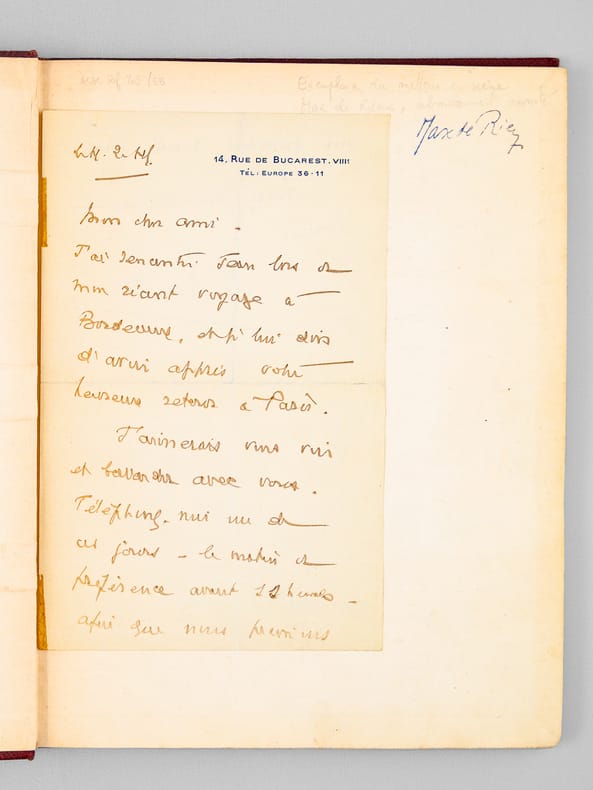 Exemplaire du metteur en scène
Max de Rieux,
Max de Rieux
14, RUE DE BUCAREST. VIIIE
TÉL : EUROPE 36-11
Mon cher ami -
J'ai rencontré Jean lors de
mon récent voyage à
Bordeaux, et je lui dois
d'avoir appris votre
heureux retour à Paris.
J'aimerais vous voir
et bavarder avec vous.
Téléphonez-moi un de
ces jours - le matin de
préférence avant 11 heures -
afin que nous prenions